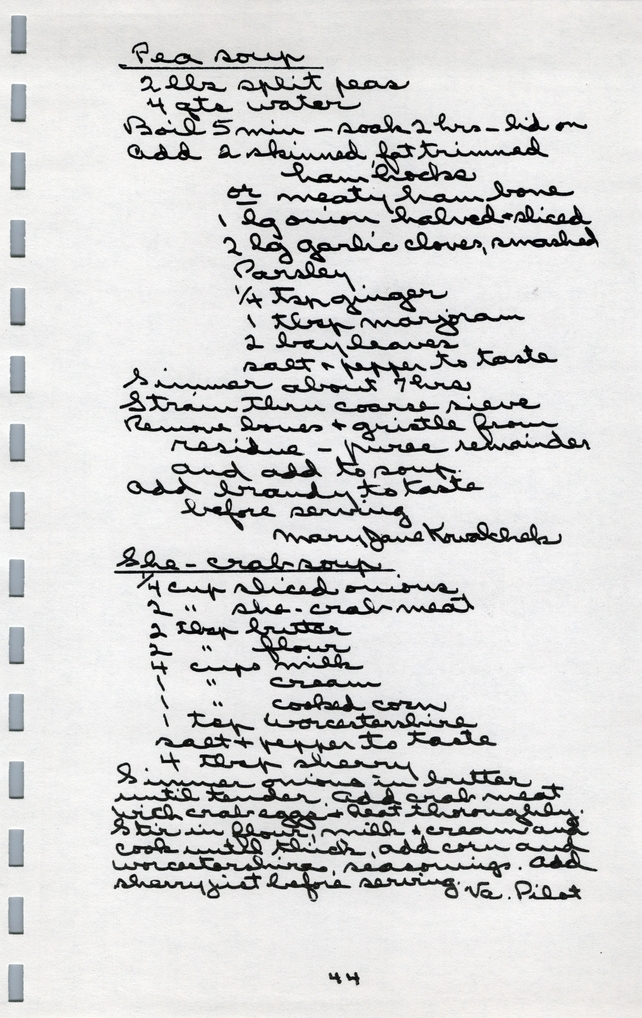 Pea soup
2 lbs split peas
4 qts water
Boil 5 min - soak 2 hrs - lid on
add 2 skinned, fat trimmed
ham hocks
or meaty ham bone
1 lg onion halved + sliced
2 lg garlic cloves, smashed
Parsley
1/4 tsp ginger
1 tbsp marjoram
2 bay leaves
salt + pepper to taste
Simmer about 7 hrs
Strain thru coarse sieve
Remove bones + gristle from
residue - puree remainder
and add to soup.
add brandy to taste
before serving
Mary Jane Kowalchek
She-crab soup
1/4 cup sliced onions
2 " she-crab meat
2 tbsp butter
2 " flour
4 cups milk
1 " cream
1 " cooked corn
1 tsp worcestershire
salt + pepper to taste
4 tbsp sherry
Simmer onions in butter
until tender. add crab meat
with crab eggs + heat thoroughly.
Stir in flour, milk + cream and
cook until thick, add corn and
worcestershire, seasonings. add
sherry just before serving. Va. Pilot
44